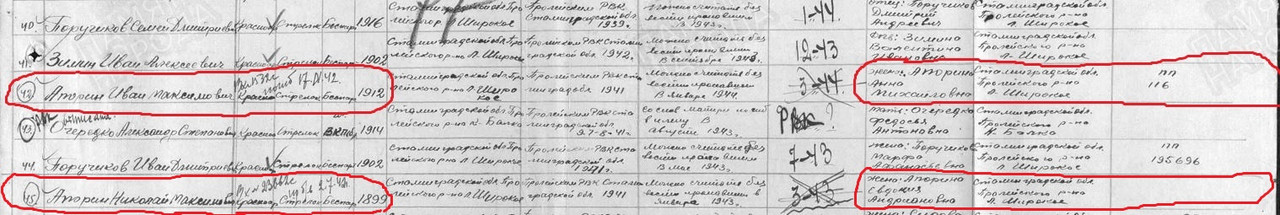 40. Поручиков Семен Дмитриевич Красноа. Стрелок Беспар 1916 Сталинградской обл. Пролейского р-на с. Широкое Пролейским РВК Сталинградской обл. 1939г. Можно считать без вести пропавшим в 1943г. 1-44 Отец: Поручиков Дмитрий Андреевич Сталинградской обл. Пролейского р-на с. Широкое
41. Зимин Иван Алексеевич Красноа. Стрелок Беспар 1902 Сталинградской обл. Пролейского р-на с. Широкое Пролейским РВК Сталинградской обл. 1942, Можно считать без вести пропавшим в сентябре 1943. 12-43 Зимина Валентина Ивановна Сталинградской обл. Пролейского р-на с. Широкое
42. Апорин Иван Максимович погиб 17.IX.42. Красноа. Стрелок Беспар 1912 Сталинградской обл. Пролейского р-на с. Широкое Пролейским РВК Сталинградской обл 1941 Можно считать без вести пропавшим в январе 1944 3-44 жена: Апорина Анна Михайловна Сталинградской обл. Пролейского р-на с. Широкое пп 116
43. Очередко Александр Степанович Красноа. Стрелок ВКПб 1914 Сталинградской обл. Пролейского р-на х. Балка Пролейским РВК Сталинградской обл. 27-8-41г. Со слов матери погиб в августе 1943г. РВК? мать: Очередко Федосья Антоновна Сталинградской обл. Пролейского р-на х. Балка
44. Поручиков Иван Дмитриевич Красноа. Стрелок Беспар 1902 Сталинградской обл. Пролейского р-на с. Широкое Пролейским РВК Сталинградской обл. 1941г. Можно считать без вести пропавшим в мае 1943г. 7-43 жена: Поручикова Марфа Афанасьевна Сталинградской обл. Пролейского р-на с. Широкое 195696
45. Апорин Николай Максимович Красноа. Стрелок Беспар 1899 Сталинградской обл Пролейского р-на с. Широкое Пролейским РВК Сталинградской обл. 1941 Можно считать без вести пропавшим в январе 1943г. 3-43 жена: Апорина Евдокия Андриановна Сталинградской обл. Пролейского р-на с. Широкое